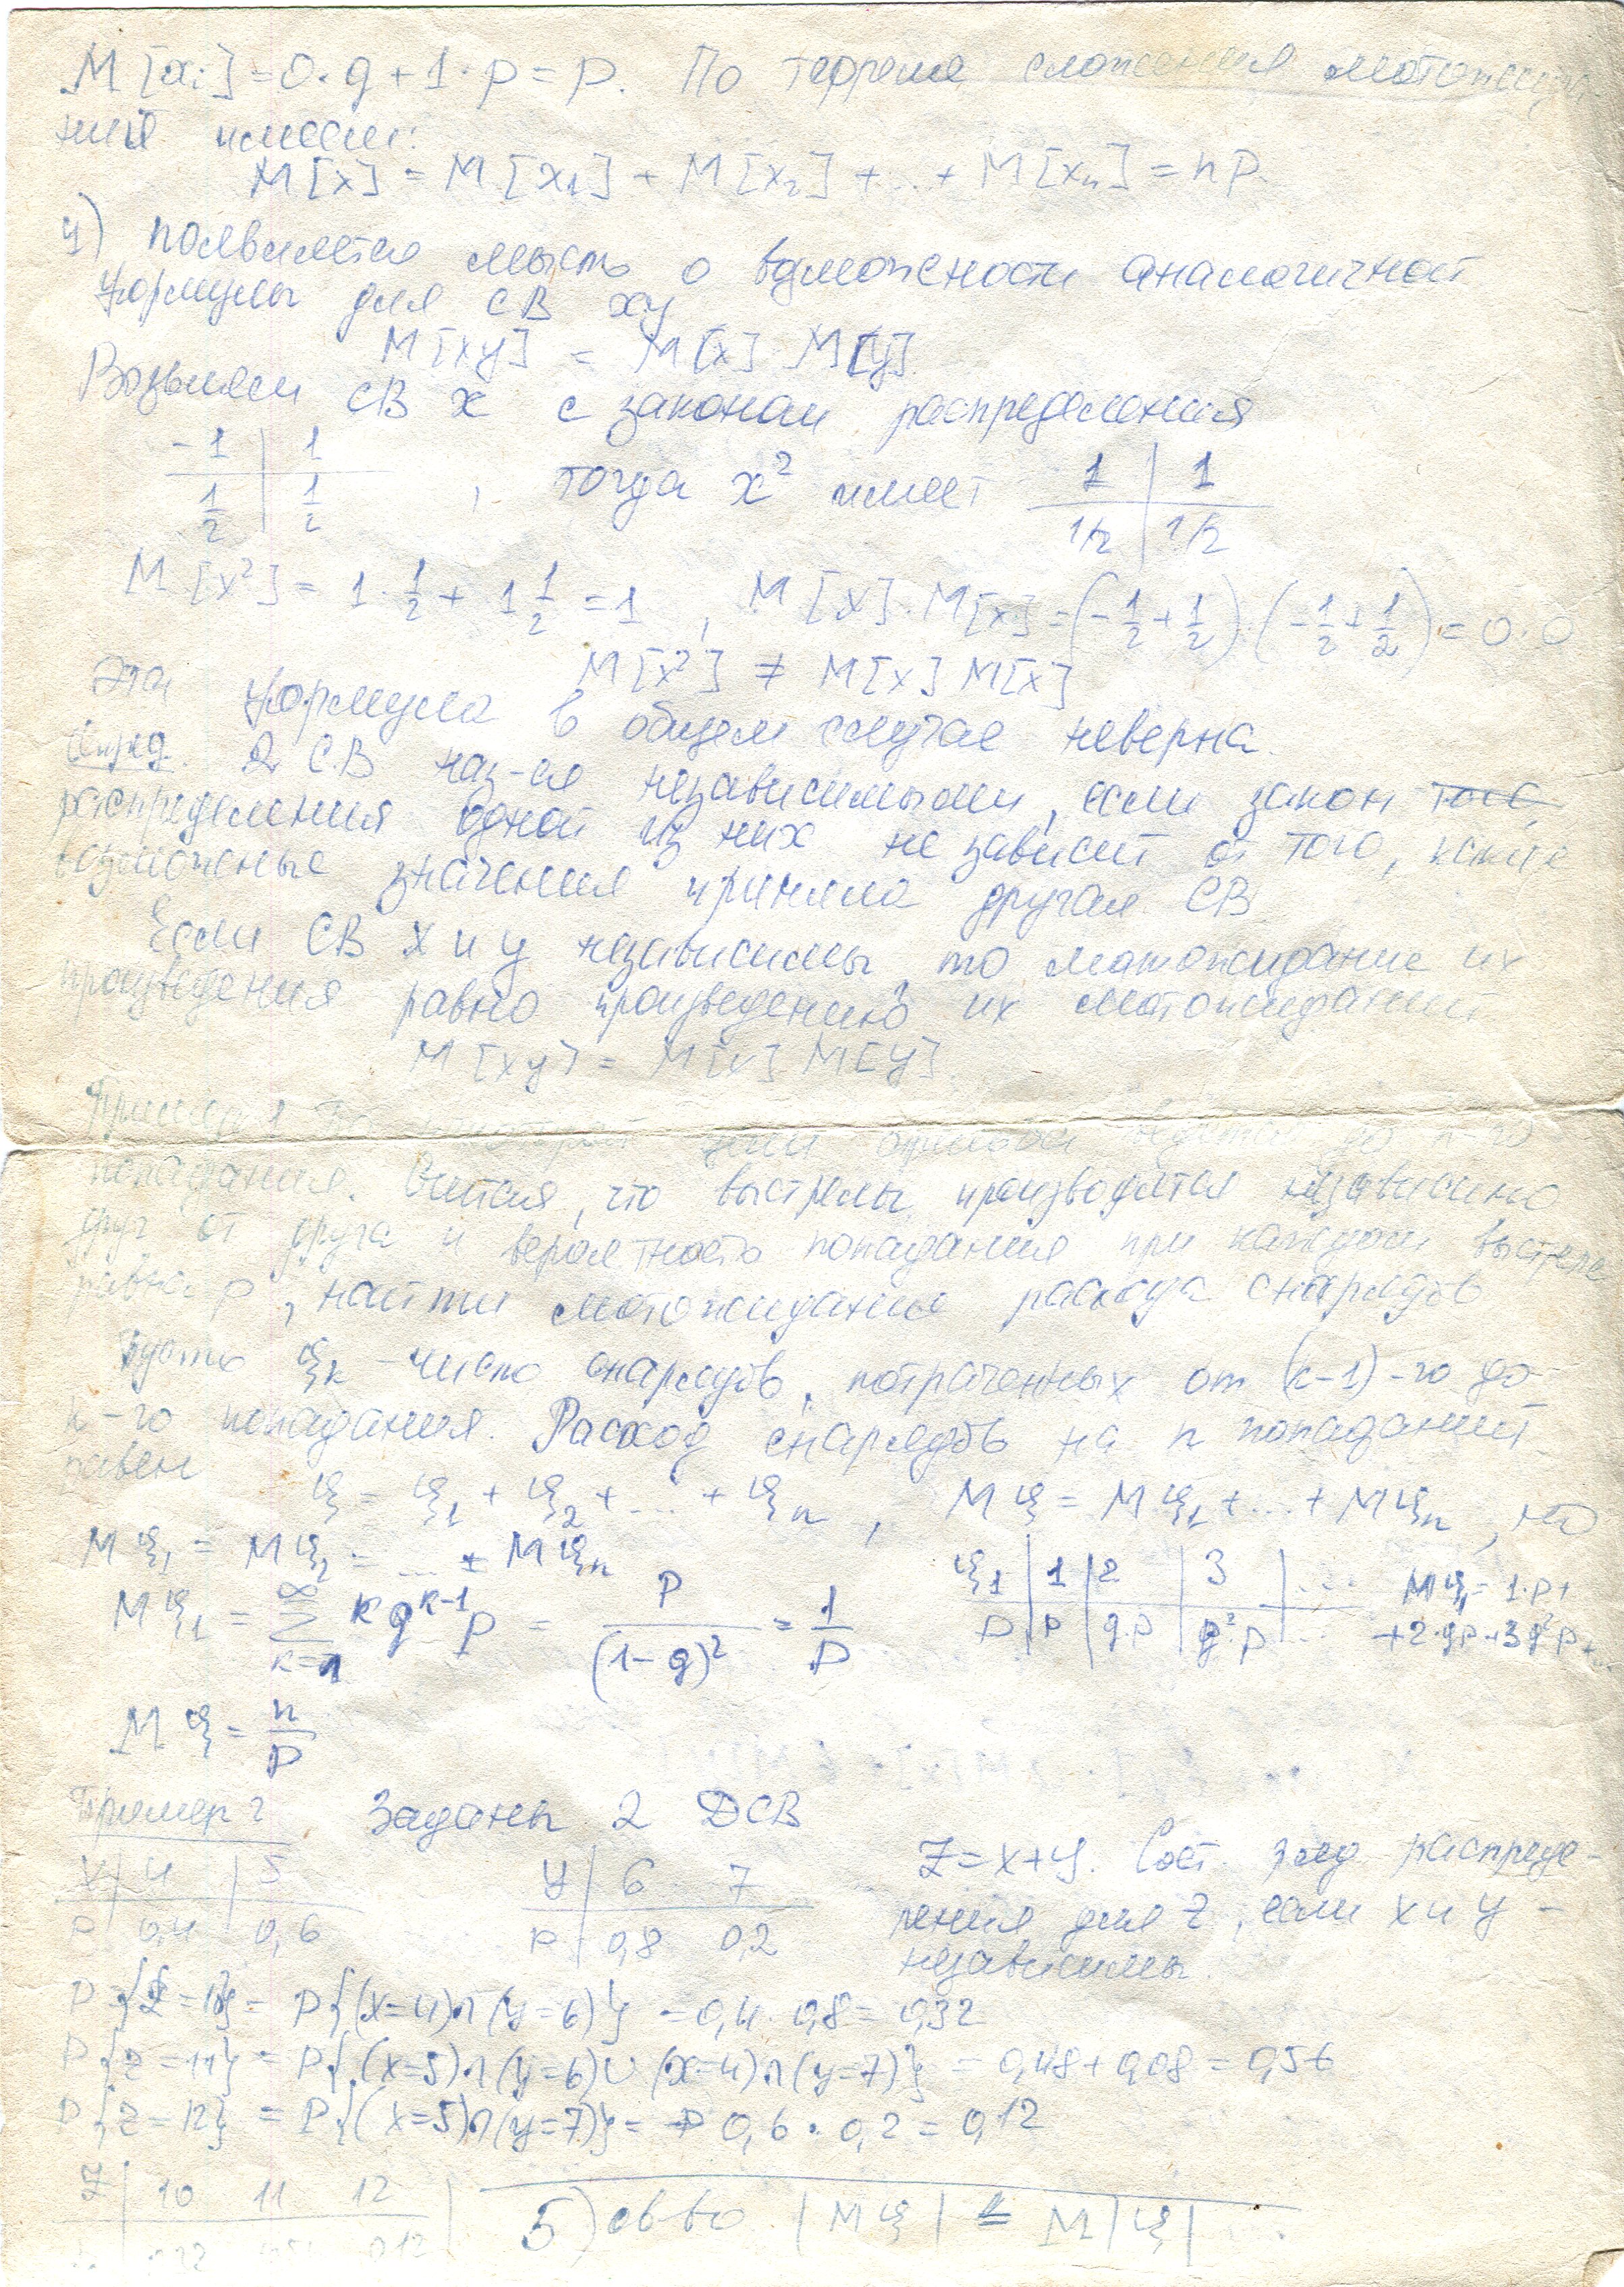 M[xi] = 0·q + 1·p = p. По теореме сложения матожида-
ний имеем:
M[x] = M[x₁] + M[x₂] + ... + M[xₙ] = np
4) появляется мысль о возможности аналогичной
формулы для СВ xy
M[xy] = M[x] M[y]
Возьмем СВ x с законом распределения
-1 | 1
1/2 | 1/2 , тогда x² имеет 1 | 1
1/2 | 1/2
M[x²] = 1·1/2 + 1 1/2 = 1 , M[x]·M[x] = (-1/2+1/2)·(-1/2+1/2) = 0·0
M[x²] ≠ M[x] M[x]
Эта формула в общем случае неверна.
Опред. 2 СВ наз-ся независимыми, если закон того,
распределения одной из них не зависит от того, какие
возможные значения приняла другая СВ
Если СВ x и y независимы, то матожидание их
произведения равно произведению их матожиданий
M[xy] = M[x] M[y]
Пример 1 цели стрельба ведется до n-го
попадания. Считая, что выстрелы производятся независимо
друг от друга и вероятность попадания при каждом выстреле
равна p, найти матожидание расхода снарядов
Пусть ξₖ - число снарядов, потраченных от (k-1)-го до
k-го попадания. Расход снарядов на n попаданий
равен
ξ = ξ₁ + ξ₂ + ... + ξₙ , Mξ = Mξ₁ + ... + Mξₙ , но
Mξ₁ = Mξ₂ = ... = Mξₙ
ξ₁ | 1 | 2 | 3 | ... Mξ₁ = 1·p +
p | p | q·p | q²·p | ... +2·qp+3q²p+...
Mξ₁ = ∑ₖ₌₁^∞ k q^(k-1) p = p/(1-q)² = 1/p
Mξ = n/p
Пример 2 Заданы 2 ДСВ
x | 4 | 5
p 0,4 0,6
y | 6 7
p | 0,8 0,2
Z = x+y. Сост. з-н распреде-
ления для Z, если x и y -
независимы.
P{Z=10} = P{(x=4)∩(y=6)} = 0,4·0,8 = 0,32
P{Z=11} = P{(x=5)∩(y=6)∪(x=4)∩(y=7)} = 0,48+0,08 = 0,56
P{Z=12} = P{(x=5)∩(y=7)} = 0,6·0,2 = 0,12
Z | 10 11 12
0,12
5) св-во |Mξ| ≤ M|ξ|